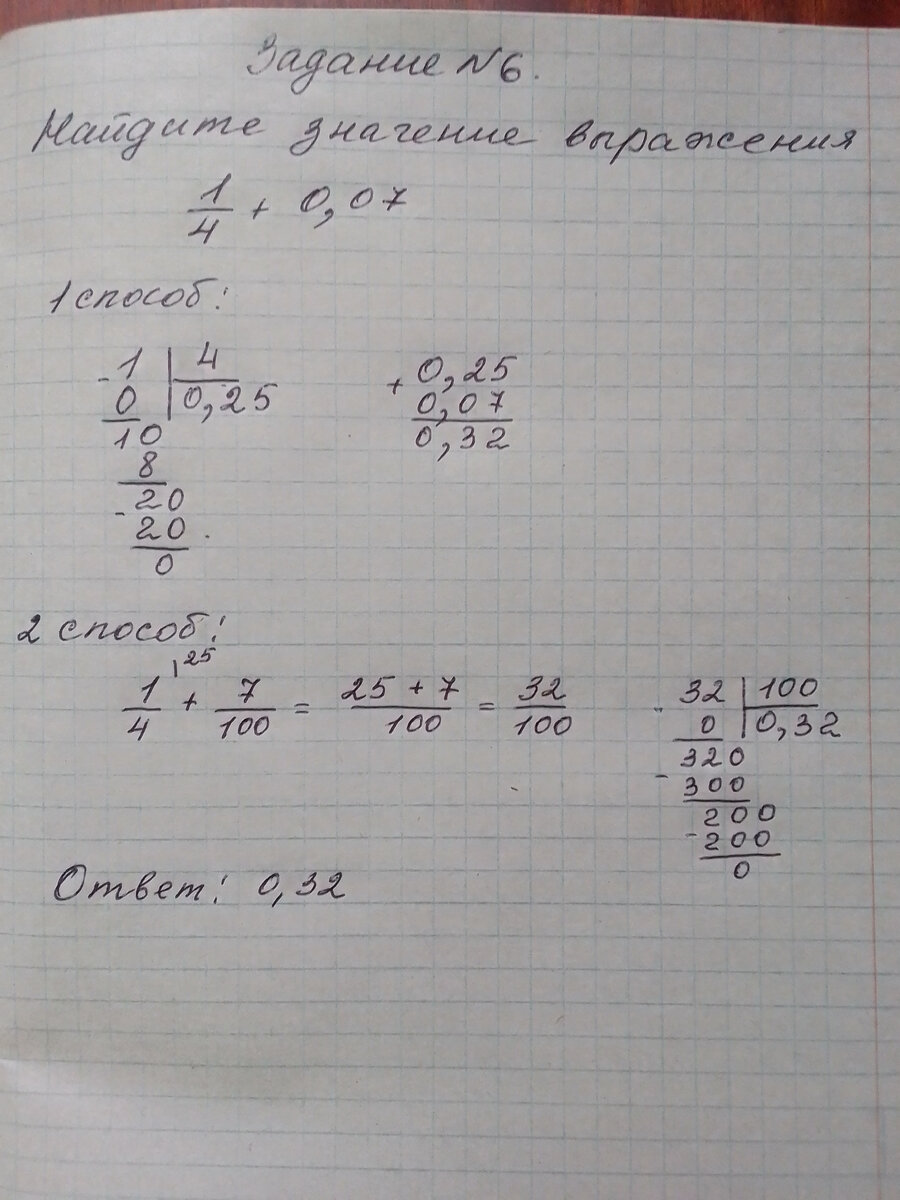 Задание №6.
Найдите значение выражения
1/4 + 0,07
1 способ:
-1 | 4
0 | 0,25
10
8
-20
20
0
+0,25
0,07
0,32
2 способ:
1/4 ⁽²⁵ + 7/100 = 25 + 7/100 = 32/100
-32 | 100
0 | 0,32
320
-300
200
-200
0
Ответ: 0,32